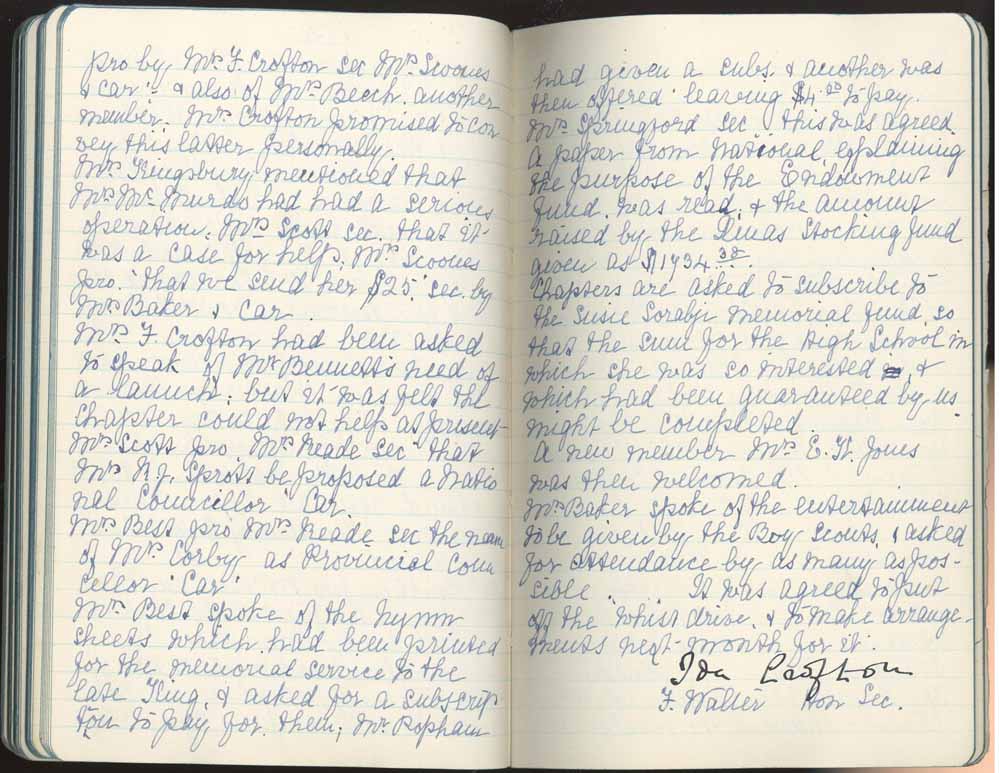 pro by Mrs F. Crofton sec Mrs Scoones
& car: & also of Mrs Beech. another
member. Mrs Crofton promised to con
vey this latter personally.
Mrs Kingsbury mentioned that
Mrs Mc Murdo had had a serious
operation. Mrs Scott sec. that it
was a case for help. Mrs Scoones
pro. that we send her $25. sec. by
Mrs Baker & Car.
Mrs F. Crofton had been asked
to speak of Mr Bennett's need of
a launch; but it was felt the
chapter could not help at present
Mrs Scott pro. Mrs Reade sec that
Mrs N.J. Sprott be proposed a Natio
nal Councillor Car.
Mrs. Best pro Mrs Reade sec the name
of Mrs Corby as Provincial Coun
cellor 'Car'
Mrs. Best spoke of the hymn
sheets which had been printed
for the memorial service to the
late King, & asked for a subscrip
tion to pay for them; Mr Popham
had given a subs. & another was
then offered leaving $4.00 to pay.
Mrs Springford sec this was agreed.
A paper from National, explaining
the purpose of the Endowment
fund. was read, & the amount
raised by the Xmas Stocking fund
given as $1734.38.
Chapters are asked to subscribe to
the Susie Sorabji memorial fund, so
that the sum for the High School in
which she was so interested, &
which had been guaranteed by us
might be completed.
A new member Mrs E. W. Jones
was then welcomed.
Mrs Baker spoke of the entertainment
to be given by the Boy Scouts, & asked
for attendance by as many as pos-
sible. It was agreed to put
off the whist drive. & to make arrange-
ments next month for it.
Ida Crofton
F. Walter Hon Sec.